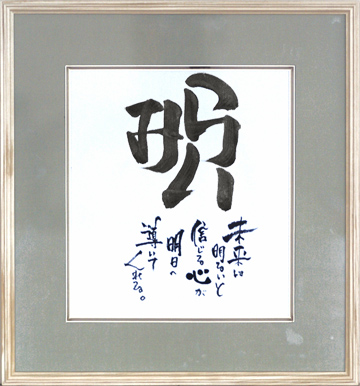 明
未来は
明るいと
信じる心が
明日へ
導いて
くれる。